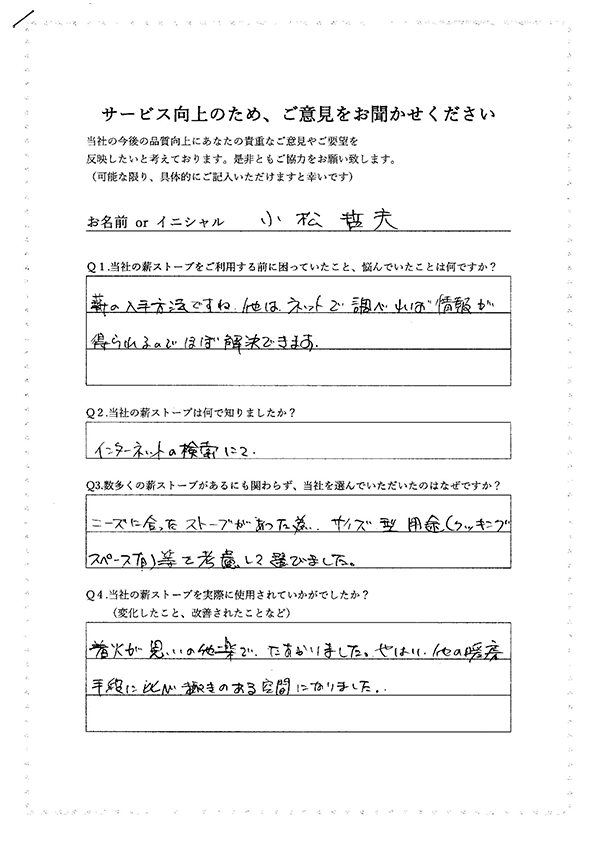 サービス向上のため、ご意見をお聞かせください
当社の今後の品質向上にあなたの貴重なご意見やご要望を
反映したいと考えております。是非ともご協力をお願い致します。
（可能な限り、具体的にご記入いただけますと幸いです）
お名前 or イニシャル 小松哲夫
Q1.当社の薪ストーブをご利用する前に困っていたこと、悩んでいたことは何ですか？
薪の入手方法ですね。他は、ネットで調べれば情報が
得られるのでほぼ解決できます。
Q2.当社の薪ストーブは何で知りましたか？
インターネットの検索にて。
Q3.数多くの薪ストーブがあるにも関わらず、当社を選んでいただいたのはなぜですか？
ニーズに合ったストーブがあった為。サイズ 型 用途（クッキング
スペース有）等を考慮して選びました。
Q4.当社の薪ストーブを実際に使用されていかがでしたか？
（変化したこと、改善されたことなど）
着火が思いの他楽で、たすかりました。やはり、他の暖房
手段に比べ 趣きのある空間になりました。